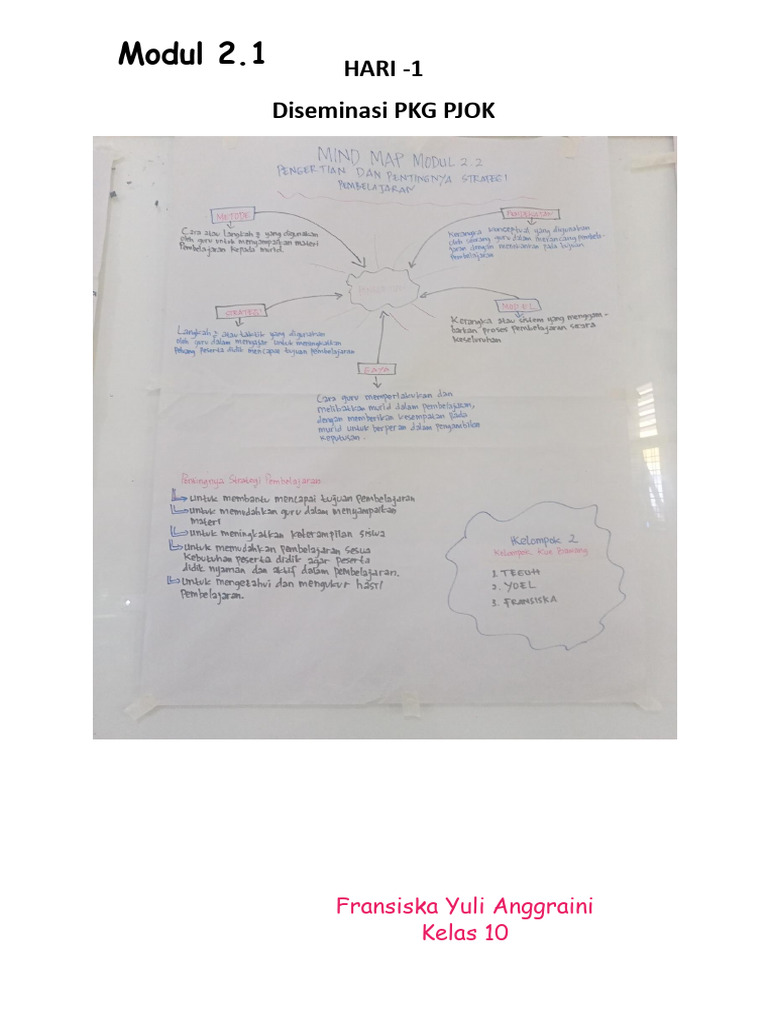 Modul 2.1
HARI -1
Diseminasi PKG PJOK
MIND MAP MODUL 2.2
PENGERTIAN DAN PENTINGNYA STRATEGI
PEMBELAJARAN
METODE
Cara atau langkah 2 yang digunakan
oleh guru untuk menyampaikan materi
Pembelajaran kepada murid.
PENDEKATAN
Kerangka konseptual yang digunakan
oleh seorang guru dalam merancang pembela-
jaran dengan menekankan pada tujuan
Pembelajaran
PENGERTIAN
STRATEGI
Langkah 2 atau taktik yang digunakan
oleh guru dalam mengajar untuk meningkatkan
peluang peserta didik mencapai tujuan pembelajaran
MODEL
Kerangka atau sistem yang menggam-
barkan proses pembelajaran secara
keseluruhan
GAYA
Cara guru memperlakukan dan
melibatkan murid dalam pembelajaran,
dengan memberikan kesempatan pada
murid untuk berperan dalam pengambilan
keputusan.
Pentingnya Strategi Pembelajaran
untuk membantu mencapai tujuan pembelajaran
untuk memudahkan guru dalam menyampaikan
materi
untuk meningkatkan keterampilan siswa
untuk memudahkan pembelajaran sesua
kebutuhan peserta didik agar peserta
didik nyaman dan aktif dalam pembelajaran.
Untuk mengetahui dan mengukur hasil
Pembelajaran.
Kelompok 2
Kelompok
1. TEGUH
2. YOEL
3. FRANSISKA
Fransiska Yuli Anggraini
Kelas 10